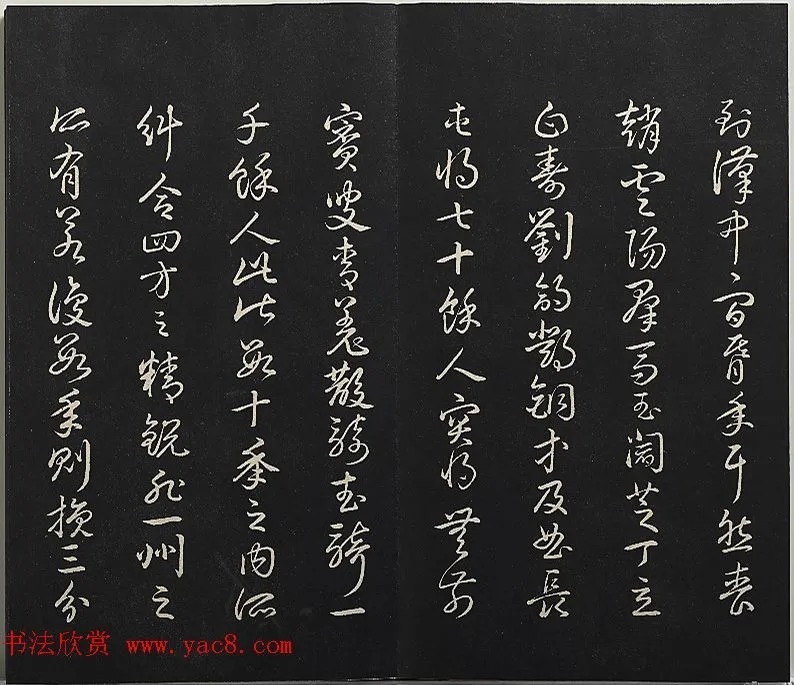 到漢中々間朞年耳然喪
趙雲陽羣馬玉閻芝丁立
白壽劉郃鄧銅等及曲長
屯將七十餘人突將無前
賨叟青羌散騎武騎一
千餘人此皆數十年之內所
糾合四方之精銳非一州之
所有若復數年則損三分
书法欣赏 www.yac8.com